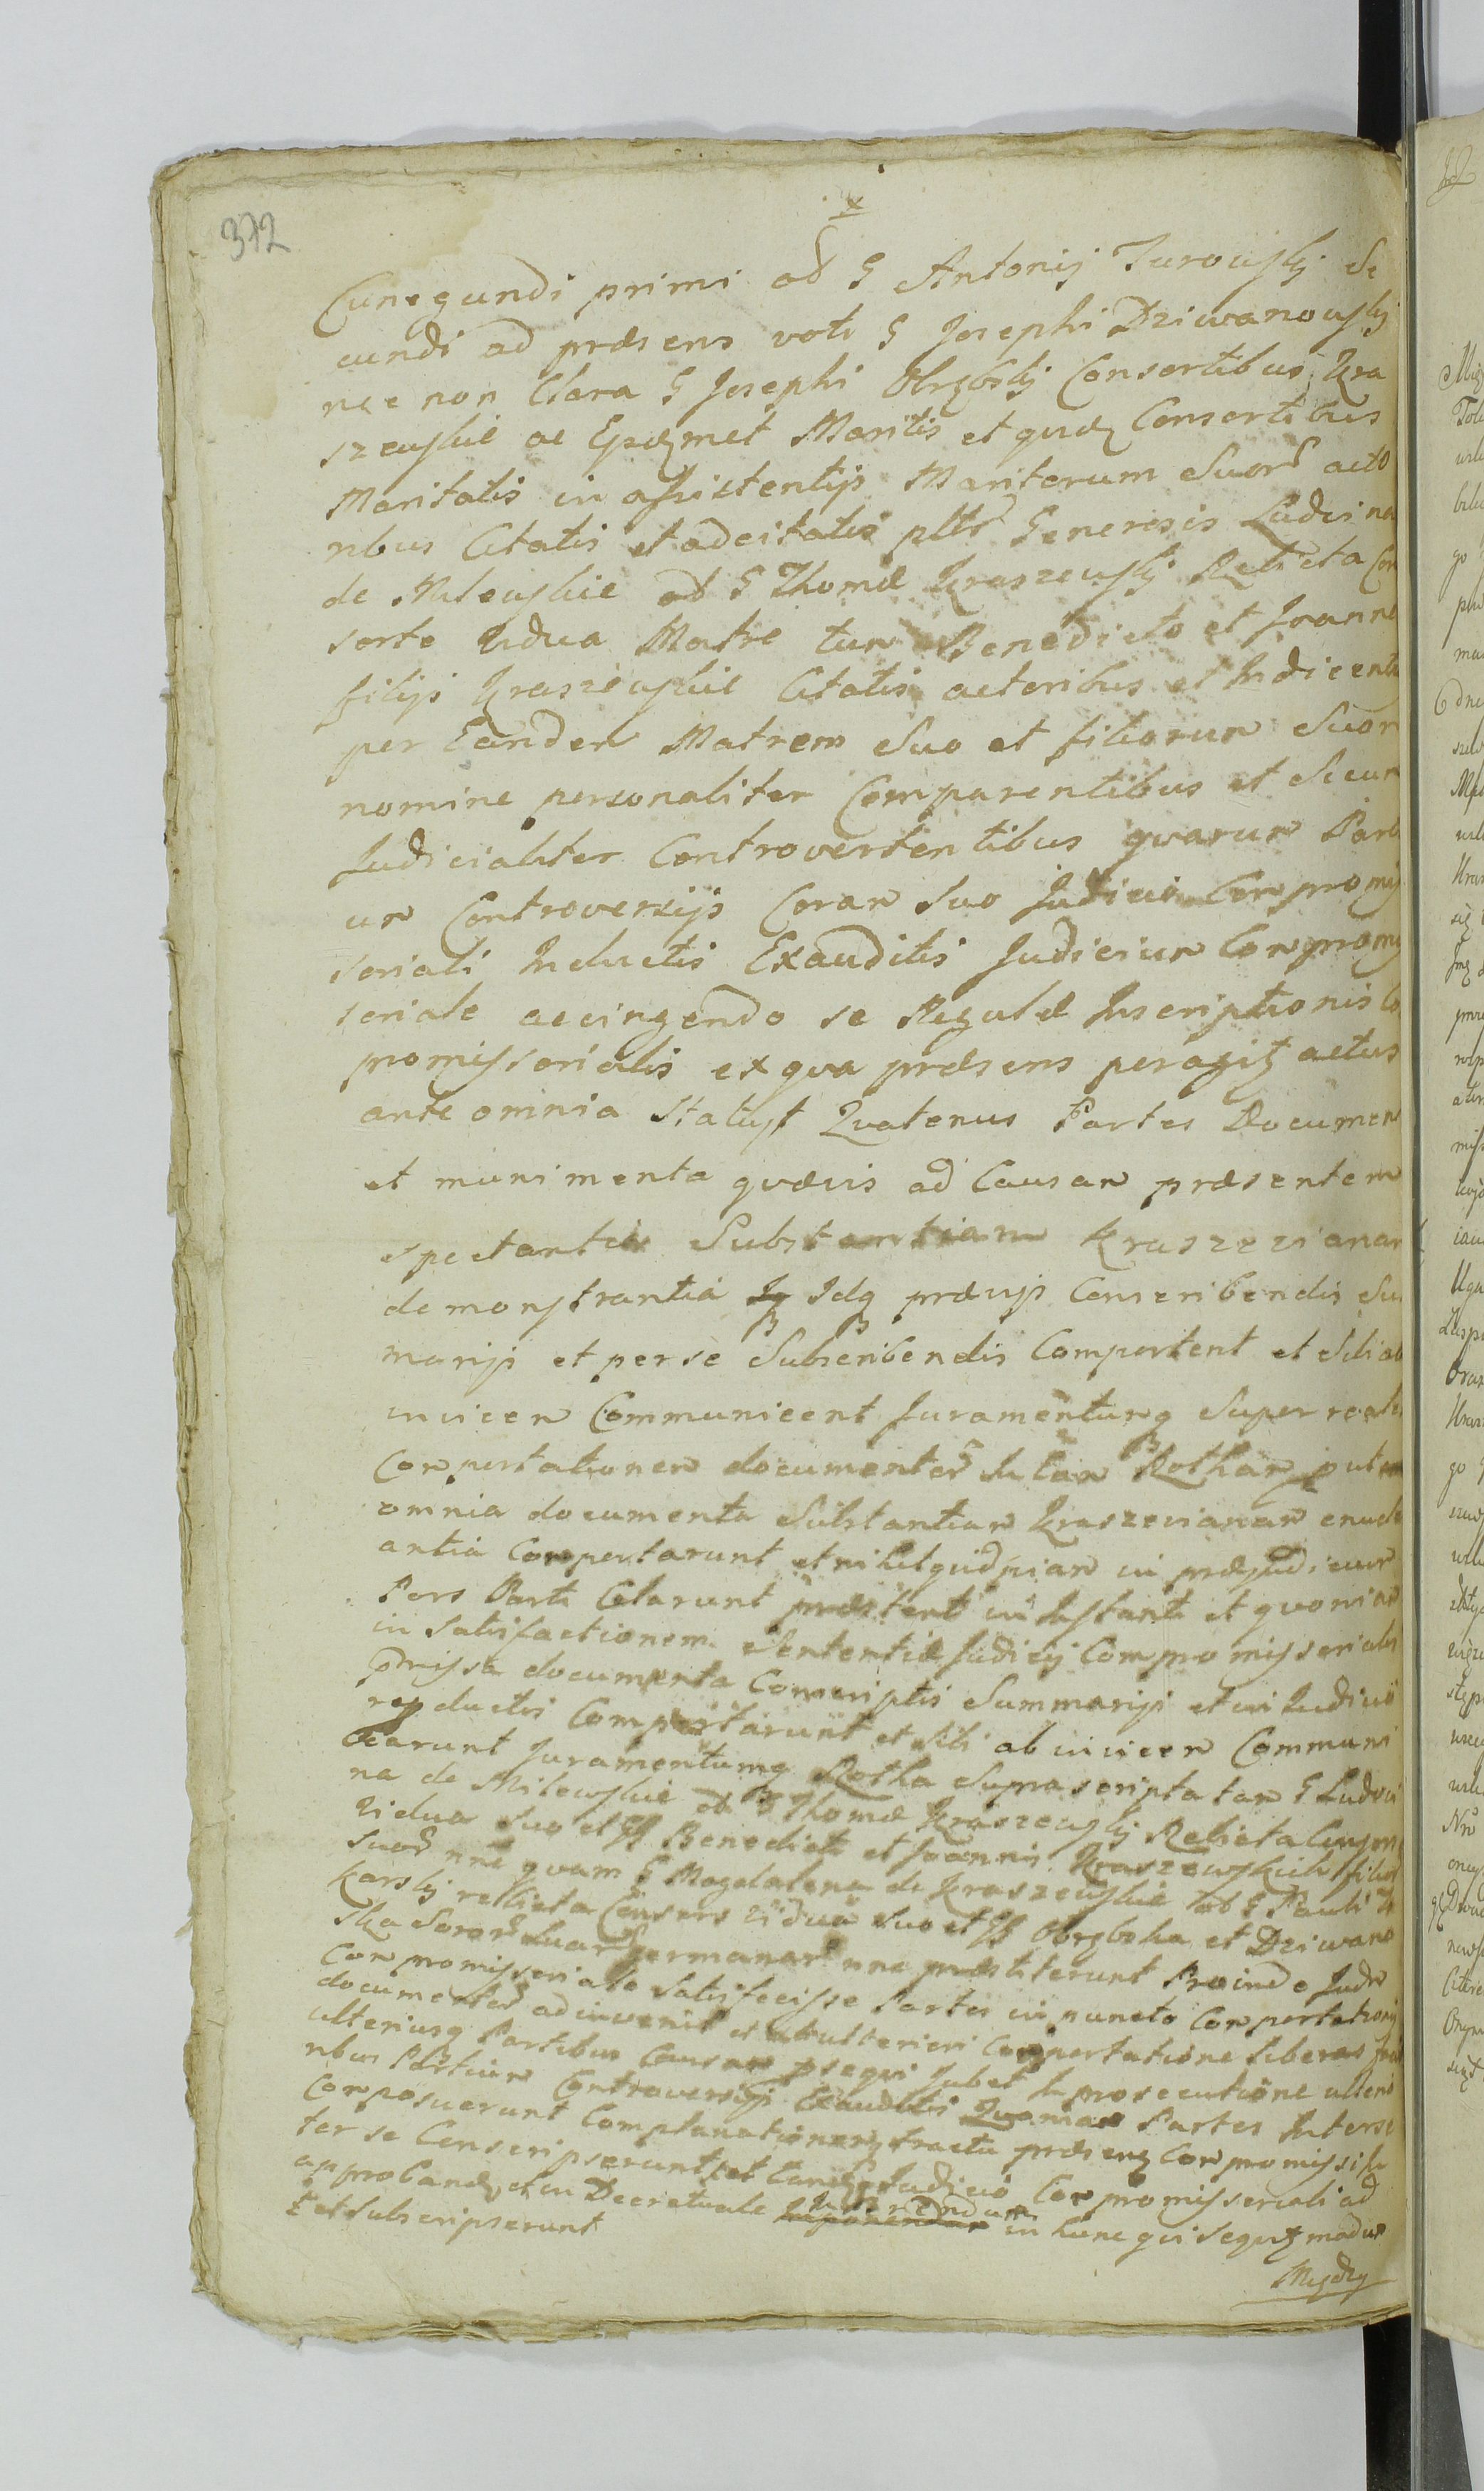 372
x
Cunegundi primi od G Antonij Turowskj Se
cundi ad præsens voti G Josephi Dziwanowskj
nec non Clara G Josephi Obrębskj Consortibus Kra
szewskie ac Eorūmet Maritis et quor Consortibus
Maritatis in assistentijs Maritorum Suor acto
ribus Citatis et adcitatis Generosis Ludovina
de Milewskie od G Thomæ Kraszewskj Relicta Con
sorte Vidua Matre tum Benedicto et Joanne
filijs Kraszewskie Citatis actoribus et Indicentib
per Eandem Matrem Suo et filiorum Suor
nomine personaliter Comparentibus et Secum
Judicialiter Controvertentibus quarum Parti
um Controversijs Coram Suo Judicio Compromis
soriali Inductis Exauditis Judicium Compromis
soriale accingendo se Regulæ Inscriptionis Co
promissorialis ex qua præsens peragitr actus
ante omnia Statuit Quatenus Partes Documen
et munimenta quævis ad Causam præsentem
spectantia Substantiam Kraszevianam
demonstrantia Idq prævijs Conscribendis Su
marijs et per se Subscribendis Comportent et Sibi ab
invicem Communicent Juramentumq Super reale
Comportationem documentor Rotham puta
omnia documenta Substantiam Kraszevianam enucle
antia Comportarunt et nihil quidpiam in præjudicium
Pars Parti Celarunt præstent in Instanti et quoniam
in Satisfactionem Sententiæ Judicij Compromissorialis
præmissa documenta Conscriptis Summarijs et in Judicio
reproductis Comportarunt et Sibi ab invicem Communi
carunt Juramentumq Rotha Suprascripta tam G Ludovi
na de Milewskie od G Thomæ Kraszewskj Relicta Consors
vidua Suo et GG Benedicti et Joannis Kraszewskich filior
Suor nne quam G Magdalena de Kraszewskie od G Pauli
karskj rellicta Consors vidua Suo et GG Obrębska et Dziwano
ska Soror Suar germanar nne præstiterunt Proinde Judm
Compromissoriale Satisfecisse Partes in puncto Comportationis
documentor adinvenit et ab ulteriori Comportatione liberas facit
ulteriusq Partibus Causam psequi Jubet In prosecutione ulterio
ribus Partium Controversijs Exauditis Quoniam Partes Interse
Composuerunt Complanationemq tractu præsens Compromissi In
ter se Conscripserunt et Eandem Judicio Compromissoriali ad
approbandum et in Decretu ale Inserendum in hunc qui sequitr modum
et Subscripserunt
Między